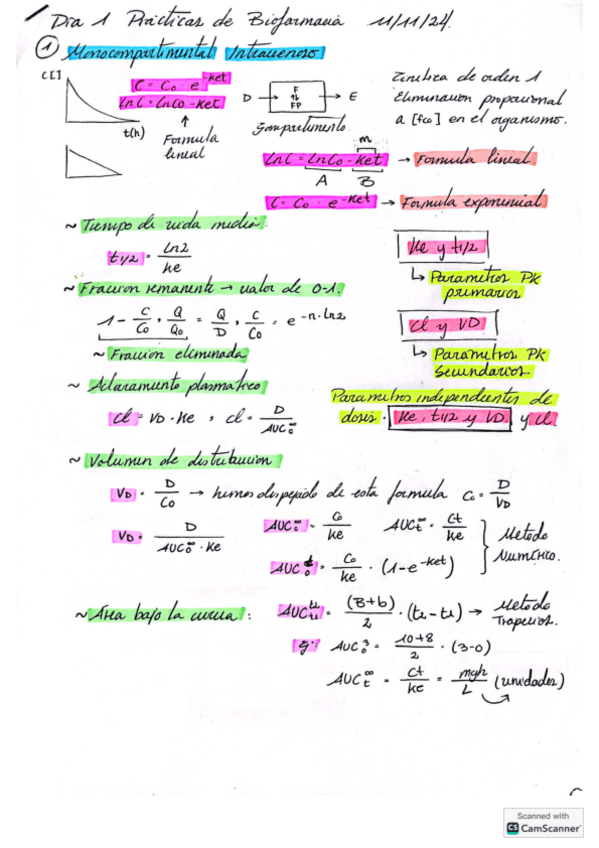 Día 1 Prácticas de Biofarmacia 11/11/24.
① Monocompartimental Intravenoso
C[]
C = C₀ · e^-ket
lnC = lnC₀ - ket
t(h)
↑
Formula
lineal
D → F ⇅ FP → E
Compartimento
Cinética de orden 1
Eliminación proporcional
a [fco] en el organismo.
m
lnC = lnC₀ - ket → Formula lineal
A B
C = C₀ · e^-ket → Formula exponencial
~ Tiempo de vida media:
t1/2 = ln2/ke
Ke y t1/2
↳ Parametros PK
primarios
~ Fracción remanente → valor de 0-1.
1 - C/C₀, Q/Q₀ = Q/D, C/C₀ = e^-n·ln2
~ Fracción eliminada
Cl y VD
↳ Parametros PK
secundarios
~ Aclaramiento plasmatico
Cl = VD · Ke , Cl = D/AUC₀^∞
Parametros independientes de
dosis · Ke, t1/2 y VD. y Cl.
~ Volumen de distribucion
VD = D/C₀ → hemos despejado de esta formula C₀ = D/VD
VD = D/(AUC₀^∞ · Ke)
AUC₀^∞ = C₀/ke AUCt^∞ = Ct/ke
AUC₀^t = C₀/ke · (1-e^-ket)
Metodo
Numérico.
~ Área bajo la curva : AUC t₁^t₂ = (B+b)/2 · (t₂-t₁) → Metodo
Trapecios.
Ej: AUC₀³ = (10+8)/2 · (3-0)
AUCt^∞ = Ct/ke = mgh/L (unidades)
Scanned with
CS CamScanner